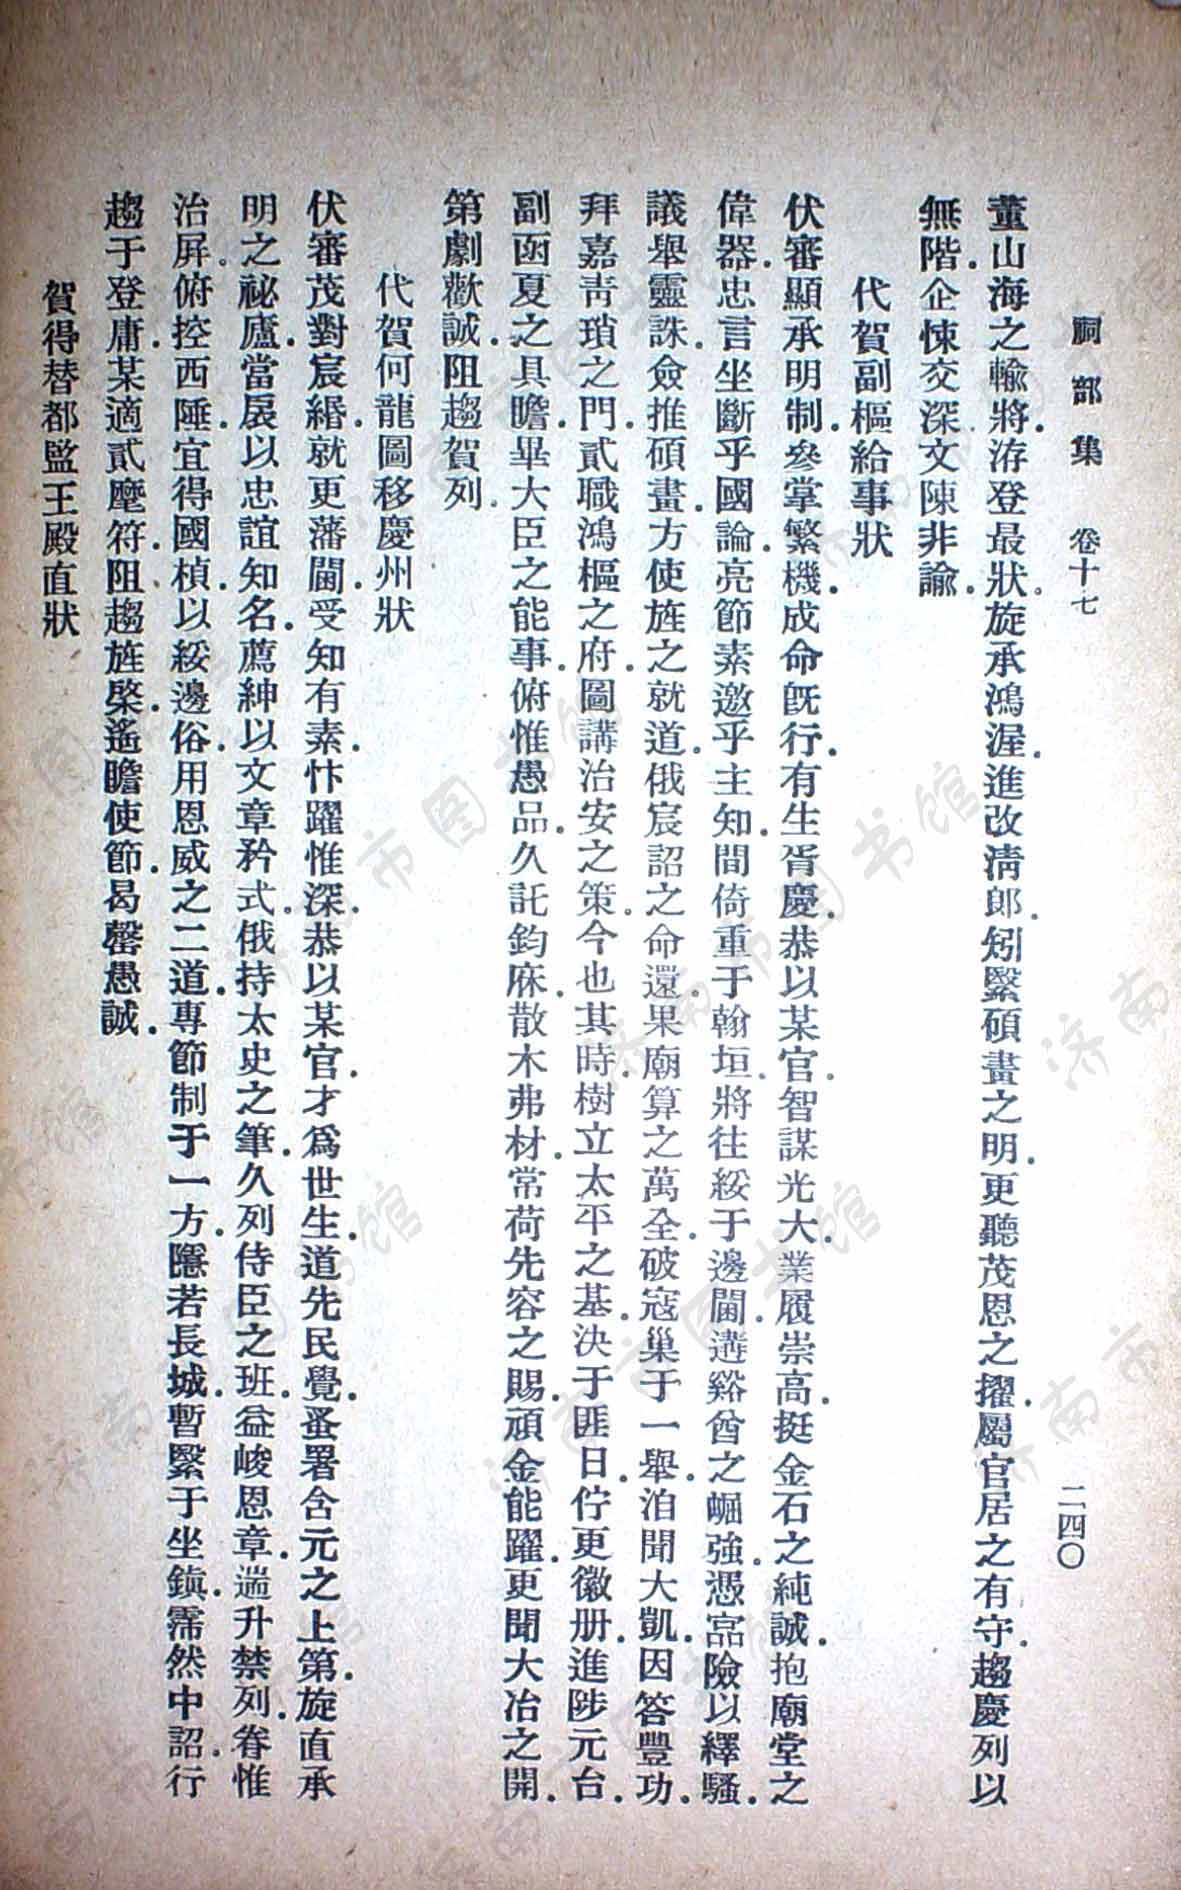 祠部集 卷十七 二四〇
董山海之輸.將洊登最狀。旋承鴻渥.進改淸郎.矧繄碩畫之明.更聽茂恩之擢.屬官居之有守.趨慶列以
無階.企悚交深.文陳非諭.
代賀副樞給事狀
伏審顯承明制.參掌繁機.成命旣行.有生胥慶.恭以某官.智謀光大.業履崇高.挺金石之純誠.抱廟堂之
偉器.忠言坐斷乎國論.亮節素邀乎主知.間倚重于翰垣.將往綏于邊閫.遘谿酋之崛強.憑嵓險以繹騷.
議舉靈誅.僉推碩畫.方使旌之就道.俄宸詔之命還.果廟算之萬全.破寇巢于一舉.洎聞大凱.因答豐功.
拜嘉靑瑣之門.貳職鴻樞之府.圖講治安之策。今也其時.樹立太平之基.決于匪日.佇更徽册.進陟元台.
副函夏之具瞻.畢大臣之能事.俯惟愚品.久託鈞庥.散木弗材.常荷先容之賜.頑金能躍.更聞大冶之開.
第劇歡誠.阻趨賀列.
代賀何龍圖移慶州狀
伏審茂對宸緡.就更藩閫.受知有素.忭躍惟深.恭以某官.才爲世生.道先民覺.蚤署含元之上第.旋直承
明之祕廬.當扆以忠誼知名.薦紳以文章矜式.俄持太史之筆.久列侍臣之班.益峻恩章.遄升禁列.眷惟
治屏。俯控西陲.宜得國楨.以綏邊俗.用恩威之二道.專節制于一方.隱若長城.暫繄于坐鎭.霈然中詔.行
趨于登庸.某適貳麾符.阻趨旌棨.遙瞻使節.曷罄愚誠.
賀得替都監王殿直狀